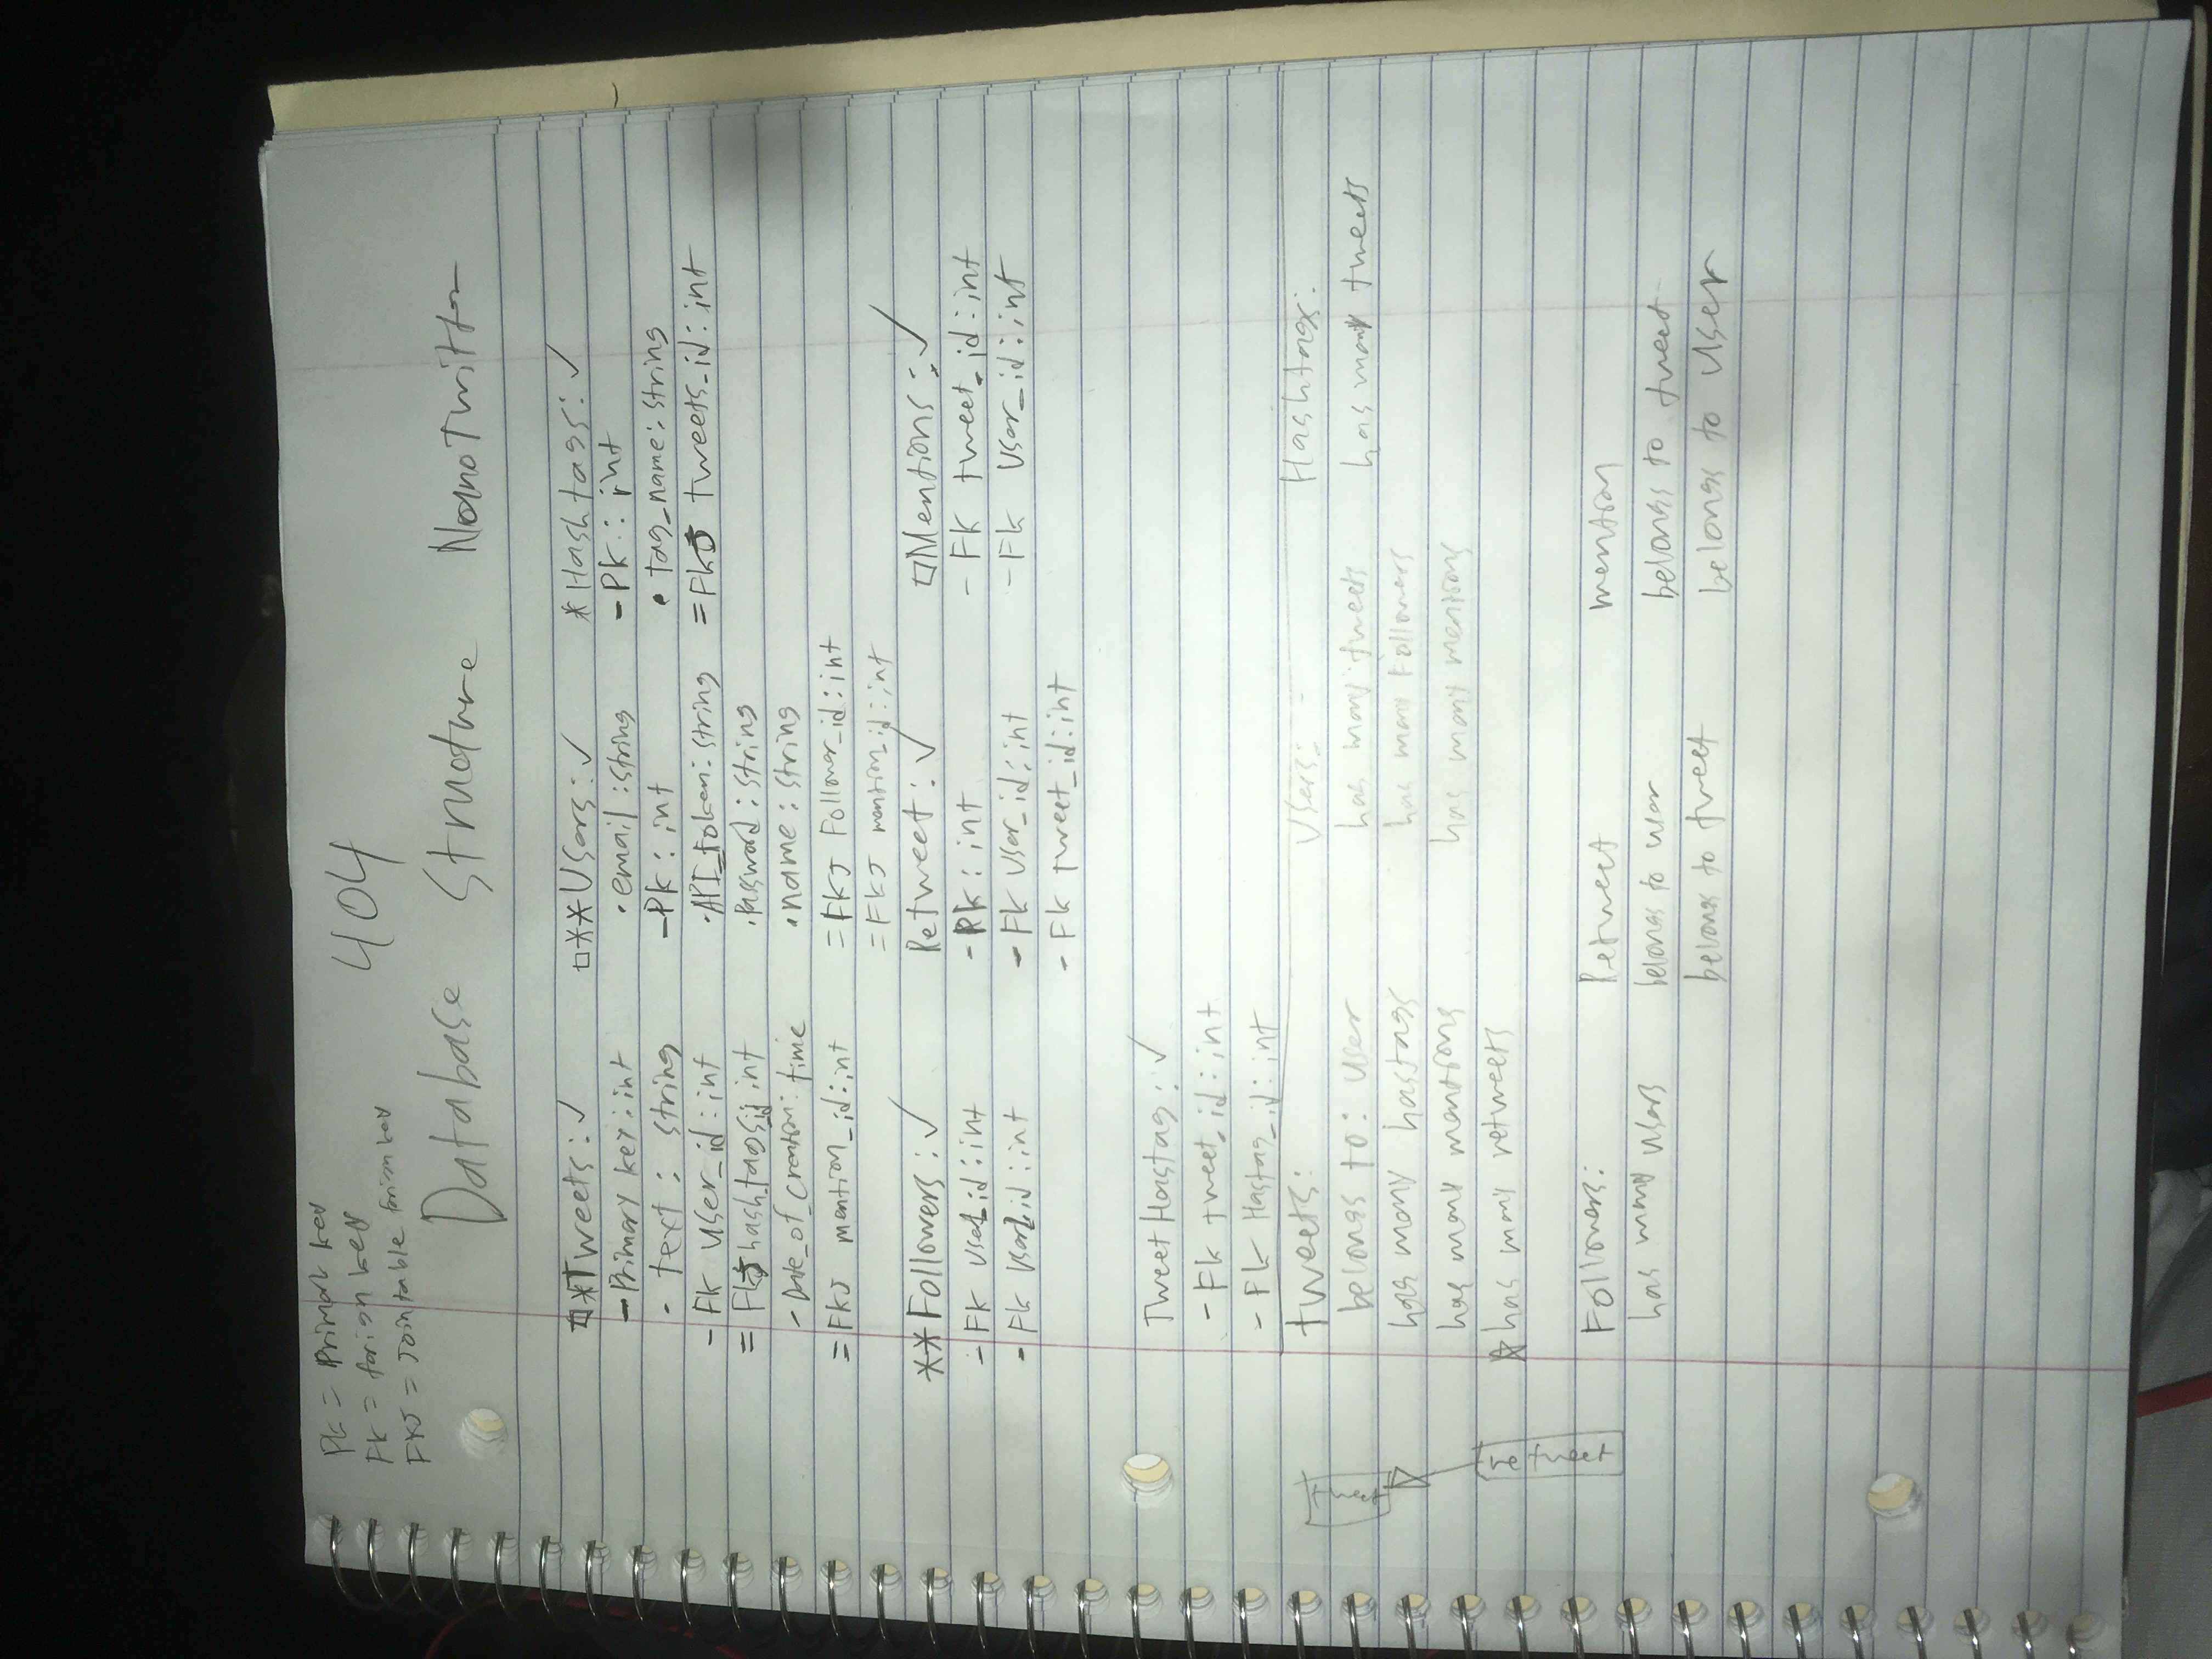 PK = Primary key
FK = forign key
FKJ = Jointable forign key
404
Database Structure NanoTwitter
*Tweets: ✓
- Primary key: int
· text: string
- FK user_id: int
= FKJ hash_tags_id int
- Date_of_creation: time
= FKJ mention_id: int
**Users: ✓
· email: string
- PK: int
· API_token: string
· Password: string
· name: string
= FKJ Follower_id: int
= FKJ mention_id: int
*Hashtags: ✓
- PK: int
· tag_name: string
= FKJ tweets_id: int
**Followers: ✓
- FK user1_id: int
- FK user2_id: int
Retweet: ✓
- PK: int
- FK user_id: int
- FK tweet_id: int
□Mentions: ✓
- FK tweet_id: int
- FK user_id: int
TweetHastag: ✓
- FK tweet_id: int
- FK Hastag_id: int
tweets:
belongs to: user
has many hastags
has many mentions
☆ has many retweets
Users:
has many tweets
has many Followers
has many mentions
Hashtags:
has many tweets
tweet
retweet
Followers:
has many users
Retweet
belongs to user
belongs to tweet
mention
belongs to tweet
belongs to user